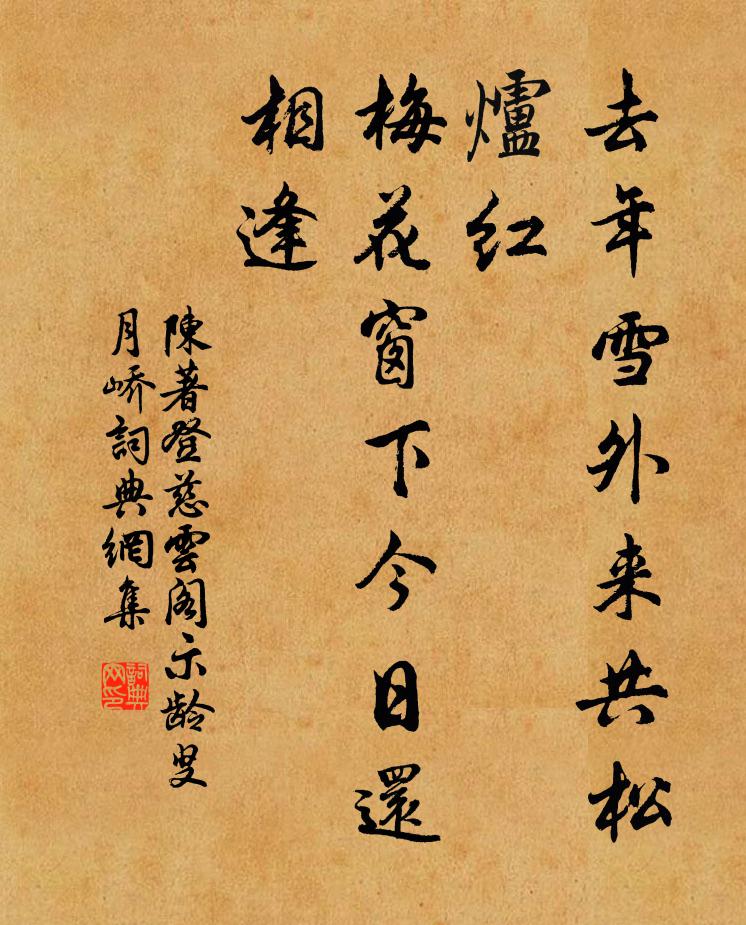 去年雪外来共松
爐红
梅花窗下今日還
相逢
陳著登慈雲阁示龄叟
月峤詞典網集
詞典网印